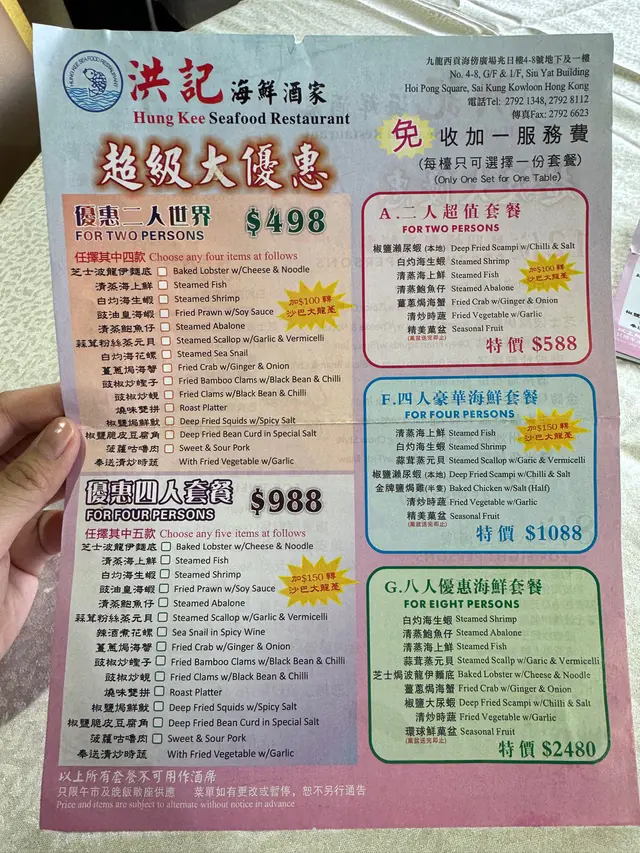 HUNG KEE SEAFOOD RESTAURANT
洪記海鮮酒家
Hung Kee Seafood Restaurant
九龍西貢海傍廣場兆日樓4-8號地下及一樓
No. 4-8, G/F & 1/F, Siu Yat Building
Hoi Pong Square, Sai Kung Kowloon Hong Kong
電話Tel: 2792 1348, 2792 8112
傳真Fax: 2792 6623
超級大優惠
免收加一服務費
(每檯只可選擇一份套餐)
(Only One Set for One Table)
優惠二人世界 $498
FOR TWO PERSONS
任擇其中四款 Choose any four items at follows
芝士波龍伊麵底 Baked Lobster w/Cheese & Noodle
清蒸海上鮮 Steamed Fish
白灼海生蝦 Steamed Shrimp
豉油皇海蝦 Fried Prawn w/Soy Sauce
清蒸鮑魚仔 Steamed Abalone
蒜茸粉絲蒸元貝 Steamed Scallop w/Garlic & Vermicelli
白灼海花螺 Steamed Sea Snail
薑蔥焗海蟹 Fried Crab w/Ginger & Onion
豉椒炒蟶子 Fried Bamboo Clams w/Black Bean & Chilli
豉椒炒蜆 Fried Clams w/Black Bean & Chilli
燒味雙拼 Roast Platter
椒鹽焗鮮魷 Deep Fried Squids w/Spicy Salt
椒鹽脆皮豆腐角 Deep Fried Bean Curd in Special Salt
菠蘿咕嚕肉 Sweet & Sour Pork
奉送清炒時蔬 With Fried Vegetable w/Garlic
加$100 轉
沙巴大龍躉
優惠四人套餐 $988
FOR FOUR PERSONS
任擇其中五款 Choose any five items at follows
芝士波龍伊麵底 Baked Lobster w/Cheese & Noodle
清蒸海上鮮 Steamed Fish
白灼海生蝦 Steamed Shrimp
豉油皇海蝦 Fried Prawn w/Soy Sauce
清蒸鮑魚仔 Steamed Abalone
蒜茸粉絲蒸元貝 Steamed Scallop w/Garlic & Vermicelli
辣酒煮花螺 Sea Snail in Spicy Wine
薑蔥焗海蟹 Fried Crab w/Ginger & Onion
豉椒炒蟶子 Fried Bamboo Clams w/Black Bean & Chilli
豉椒炒蜆 Fried Clams w/Black Bean & Chilli
燒味雙拼 Roast Platter
椒鹽焗鮮魷 Deep Fried Squids w/Spicy Salt
椒鹽脆皮豆腐角 Deep Fried Bean Curd in Special Salt
菠蘿咕嚕肉 Sweet & Sour Pork
奉送清炒時蔬 With Fried Vegetable w/Garlic
加$150 轉
沙巴大龍躉
A.二人超值套餐
FOR TWO PERSONS
椒鹽瀨尿蝦(本地) Deep Fried Scampi w/Chilli & Salt
白灼海生蝦 Steamed Shrimp
清蒸海上鮮 Steamed Fish
清蒸鮑魚仔 Steamed Abalone
薑蔥焗海蟹 Fried Crab w/Ginger & Onion
清炒時蔬 Fried Vegetable w/Garlic
精美菓盆 Seasonal Fruit
(菓盆送完即止)
加$100 轉
沙巴大龍躉
特價 $588
F.四人豪華海鮮套餐
FOR FOUR PERSONS
清蒸海上鮮 Steamed Fish
白灼海生蝦 Steamed Shrimp
蒜茸蒸元貝 Steamed Scallop w/Garlic & Vermicelli
椒鹽瀨尿蝦(本地) Deep Fried Scampi w/Chilli & Salt
金牌鹽焗雞(半隻) Baked Chicken w/Salt (Half)
清炒時蔬 Fried Vegetable w/Garlic
精美菓盆 Seasonal Fruit
(菓盆送完即止)
加$150 轉
沙巴大龍躉
特價 $1088
G.八人優惠海鮮套餐
FOR EIGHT PERSONS
白灼海生蝦 Steamed Shrimp
清蒸鮑魚仔 Steamed Abalone
清蒸海上鮮 Steamed Fish
蒜茸蒸元貝 Steamed Scallp w/Garic & Vermicelli
芝士焗波龍伊麵底 Baked Lobster w/Cheese & Noodle
薑蔥焗海蟹 Fried Crab w/Ginger & Onion
椒鹽大尿蝦 Deep Fried Scampi w/Chilli & Salt
清炒時蔬 Fried Vegetable w/Garlic
環球鮮菓盆 Seasonal Fruit
(菓盆送完即止)
特價 $2480
以上所有套餐不可用作酒席
只限午市及晚飯散座供應 菜單如有更改或暫停，恕不另行通告
Price and items are subject to alternate without notice in advance